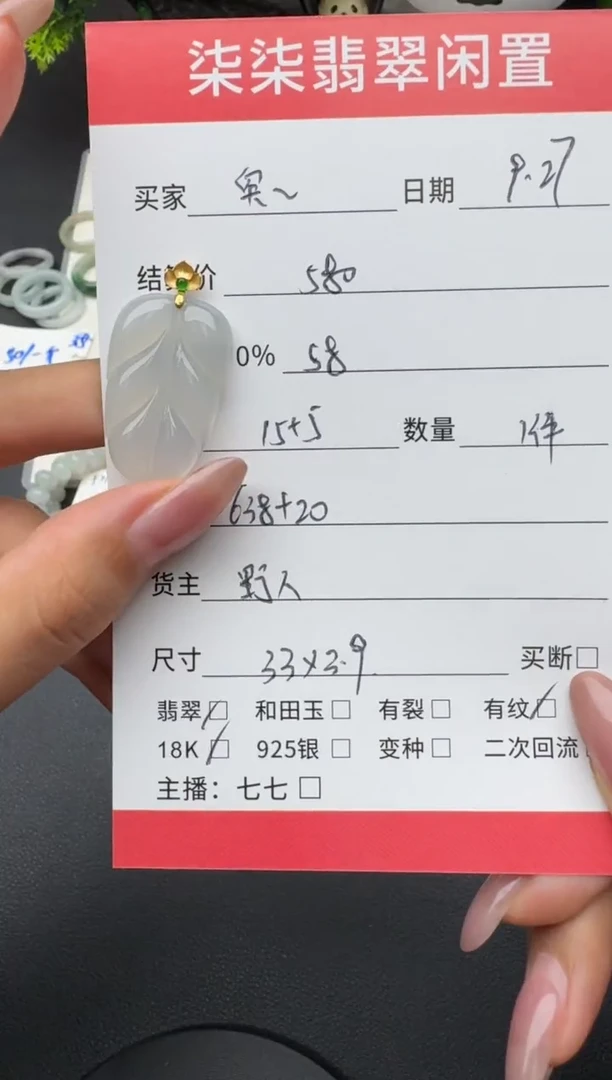 柒柒翡翠闲置
买家 宾~ 日期 9.27
结算价 580
0% 58
15+5 数量 1件
638+20
货主 野人
尺寸 33×3.9 买断□
翡翠☑ 和田玉□ 有裂□ 有纹☑
18K☑ 925银□ 变种□ 二次回流
主播：七七□